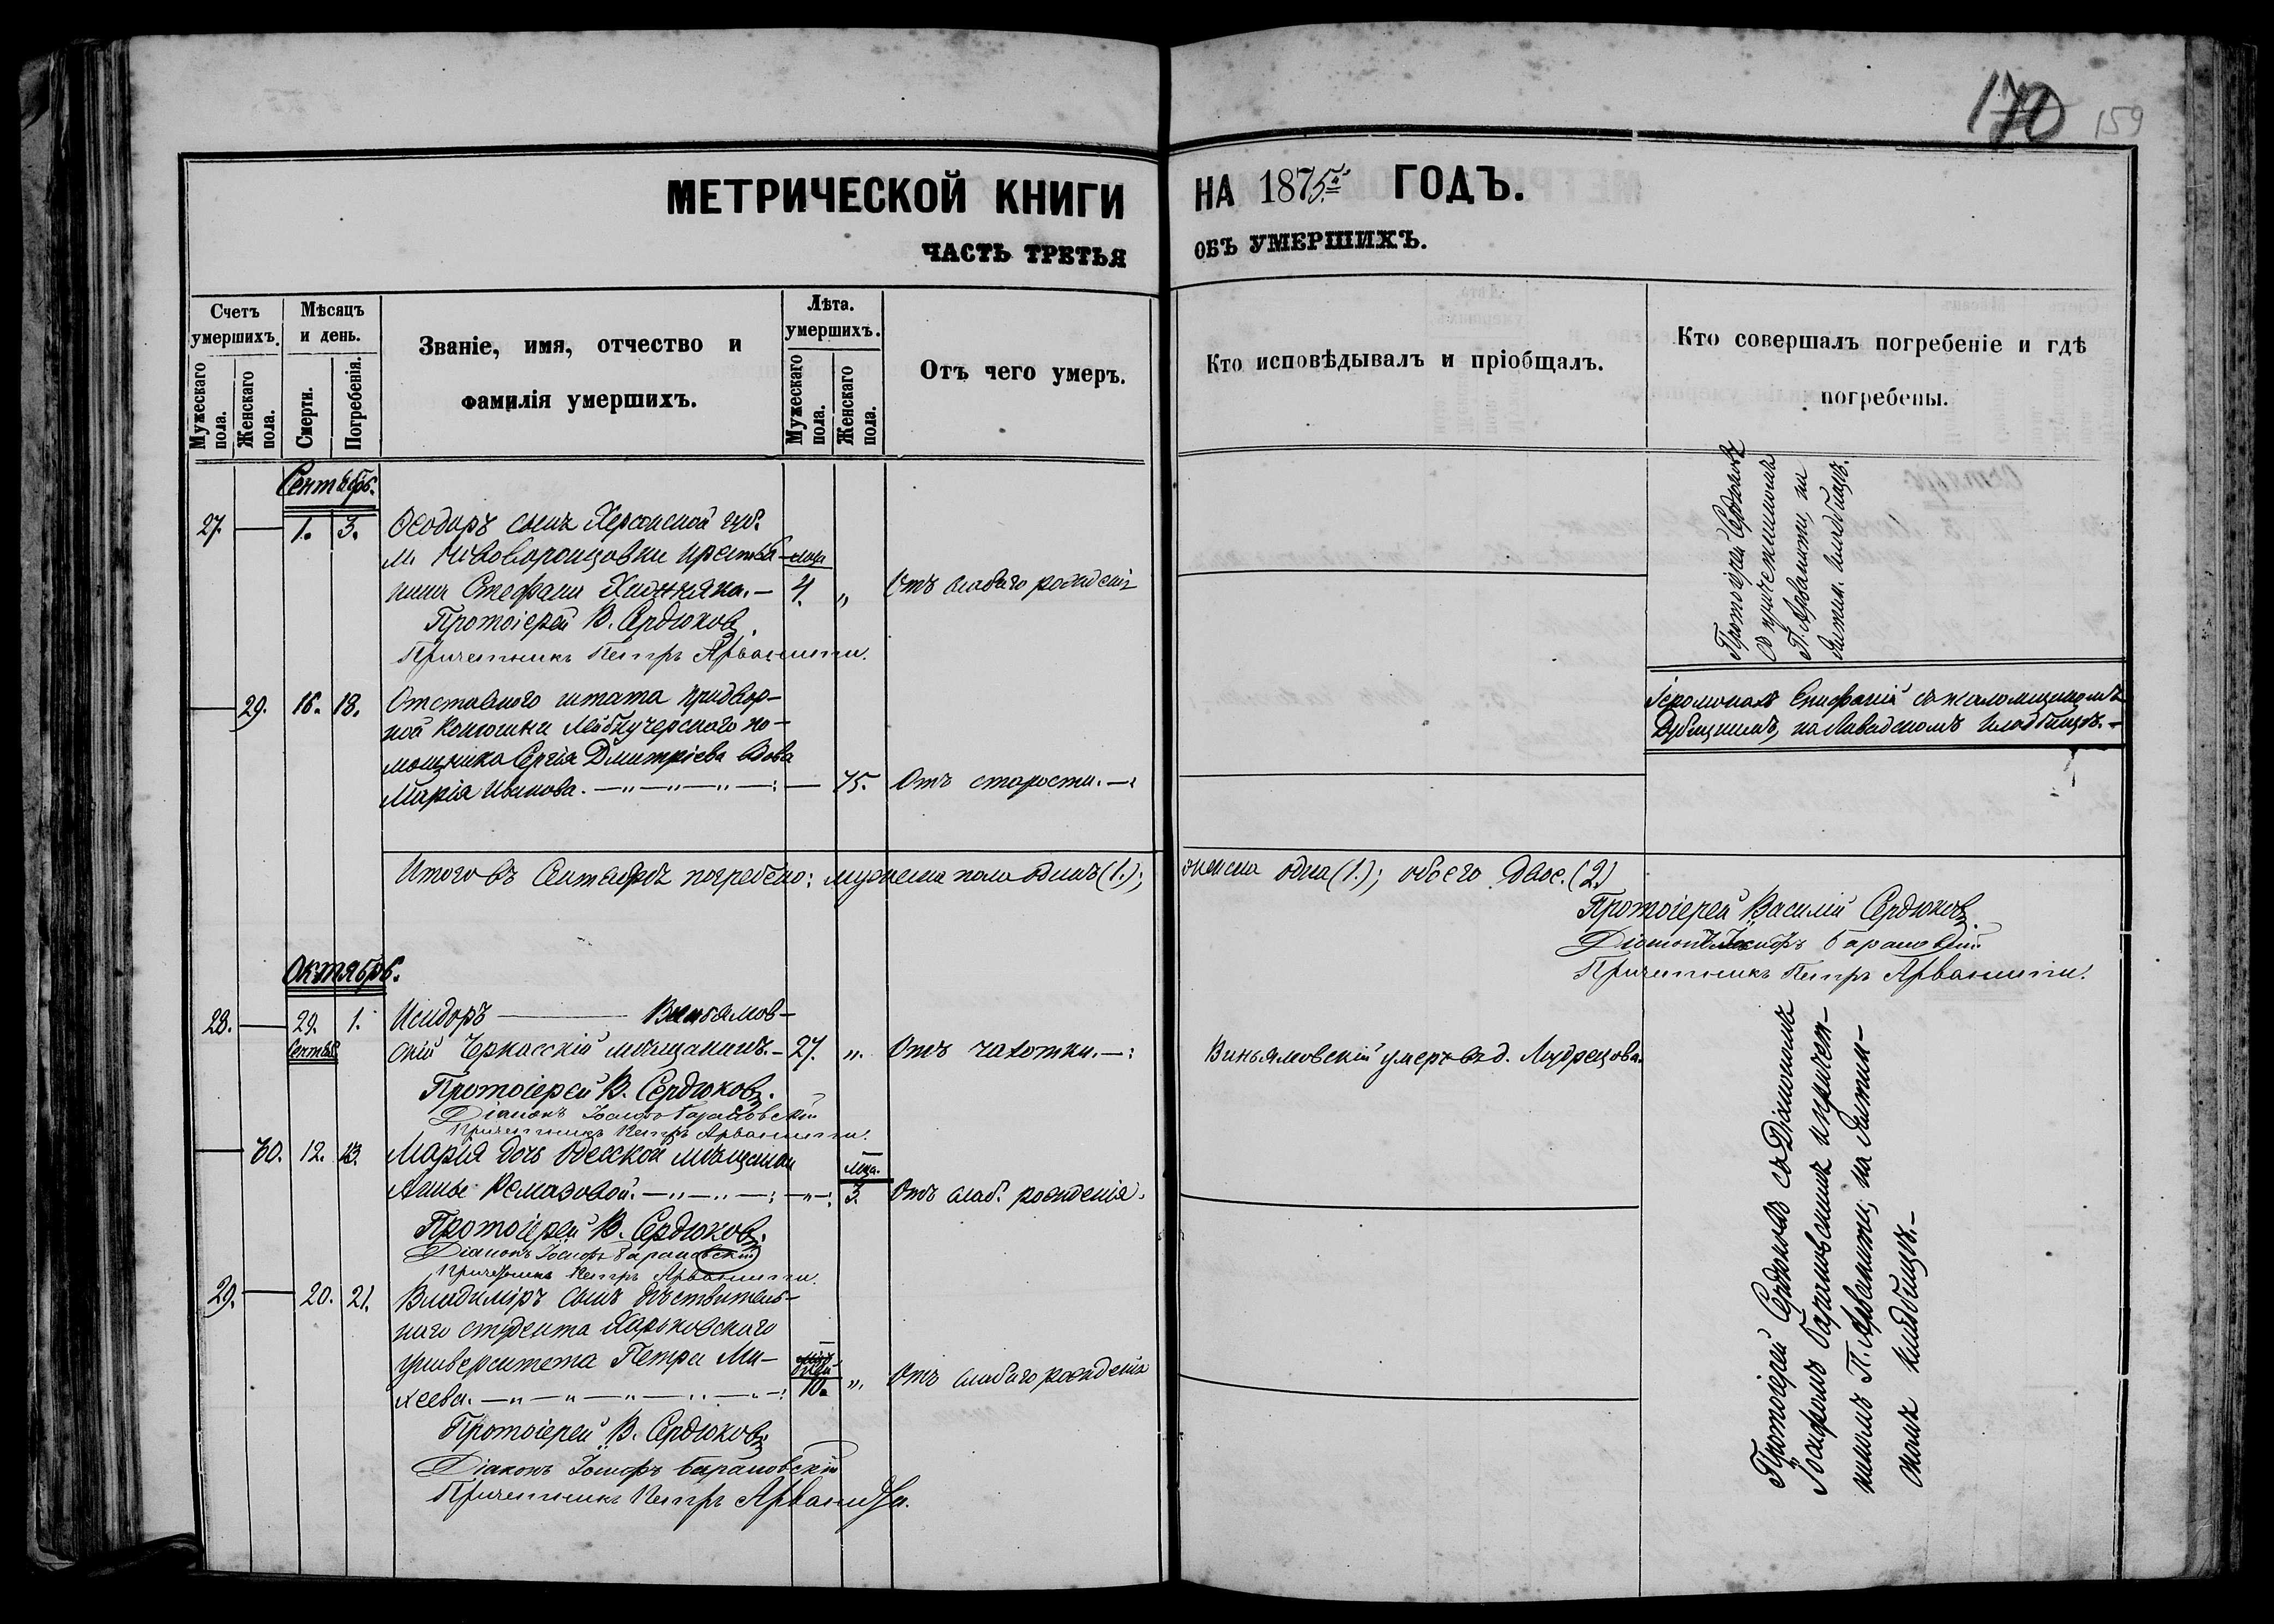 170 159
МЕТРИЧЕСКОЙ КНИГИ НА 1875й ГОДЪ.
ЧАСТЬ ТРЕТЬЯ ОБЪ УМЕРШИХЪ.
Счетъ умершихъ.
Мужескаго пола.
Женскаго пола.
Мѣсяцъ и день.
Смерти.
Погребенія.
Званіе, имя, отчество и
фамилія умершихъ.
Лѣта.
умершихъ.
Мужескаго пола.
Женскаго пола.
Отъ чего умеръ.
Кто исповѣдывалъ и пріобщалъ.
Кто совершалъ погребеніе и гдѣ
погребены.
Сентябрь.
27. — 1. 3. Ѳеодоръ сынъ Херсонской губ.
м. Нововоронцовки крестья-
нина Стефана — 4. „ Отъ слабаго рожденія
Протоіерей В. Сердюковъ.
Причетникъ Петръ Арванити.
Протоіерей Сердюковъ
съ причетникомъ
П. Арванити, на
Ялтин. кладбищѣ.
— 29. 16. 18. Отставнаго штата придвор-
ной конюшни Лейбкучерскаго по-
мощника Сергія Дмитріева вдова
Марія Иванова. — 75. Отъ старости. —
Іеромонахъ Епифаній съ
на кладбищѣ. —
Итого въ Сентябрѣ погребено: мужеска пола одинъ (1.); женска одна (1.); обоего двое. (2.)
Протоіерей Василій Сердюковъ.
Діаконъ Іосифъ Барановскій
Причетникъ Петръ Арванити.
Октябрь.
28. — 29. Сентяб. 1. Исидоръ — Виньямов-
скій Черкасскій мѣщанинъ. — 27. „ Отъ чахотки. —
Виньямовскій умеръ въ д. Мудрецова.
Протоіерей В. Сердюковъ.
Діаконъ Іосифъ Барановскій
Причетникъ Петръ Арванити.
— 30. 12. 13. Марія дочь Одесской мѣщанки
Анны Ремазовой. — мца. 3. Отъ слаб. рожденія.
Протоіерей В. Сердюковъ.
Діаконъ Іосифъ Барановскій
Причетникъ Петръ Арванити.
29. — 20. 21. Владиміръ сынъ дѣствитель-
наго студента Харьковскаго
университета Петра Ми-
хеева. — дней 10. „ Отъ слабаго рожденія
Протоіерей В. Сердюковъ
Діаконъ Іосифъ Барановскій
Причетникъ Петръ Арванити.
Протоіерей Сердюковъ съ Діакономъ
Іосифомъ Барановскимъ и причет-
никомъ П. Арванити, на Ялтин-
скомъ кладбищѣ. —